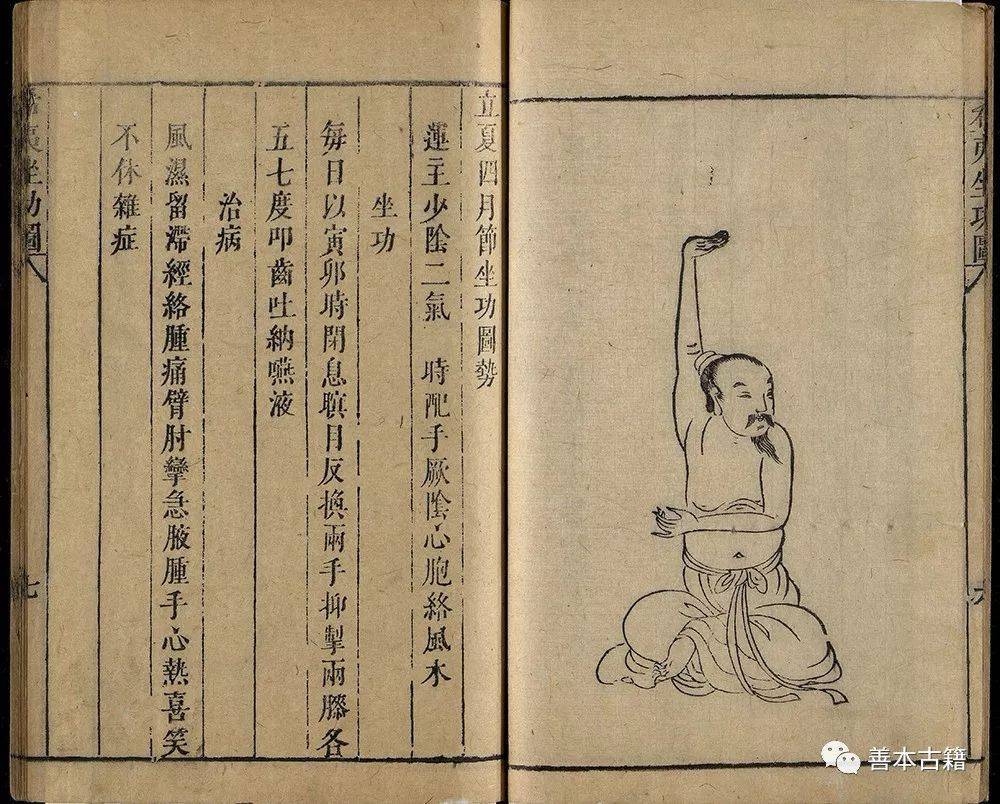 夷坐功圖
立夏四月節坐功圖勢
運主少陰二氣　時配手厥陰心胞絡風木
坐功
每日以寅卯時閉息瞑目反換兩手抑掣兩膝各
五七度叩齒吐納嚥液
治病
風濕留滯經絡腫痛臂肘攣急腋腫手心熱喜笑
不休雜症
夷坐功圖
七
善本古籍